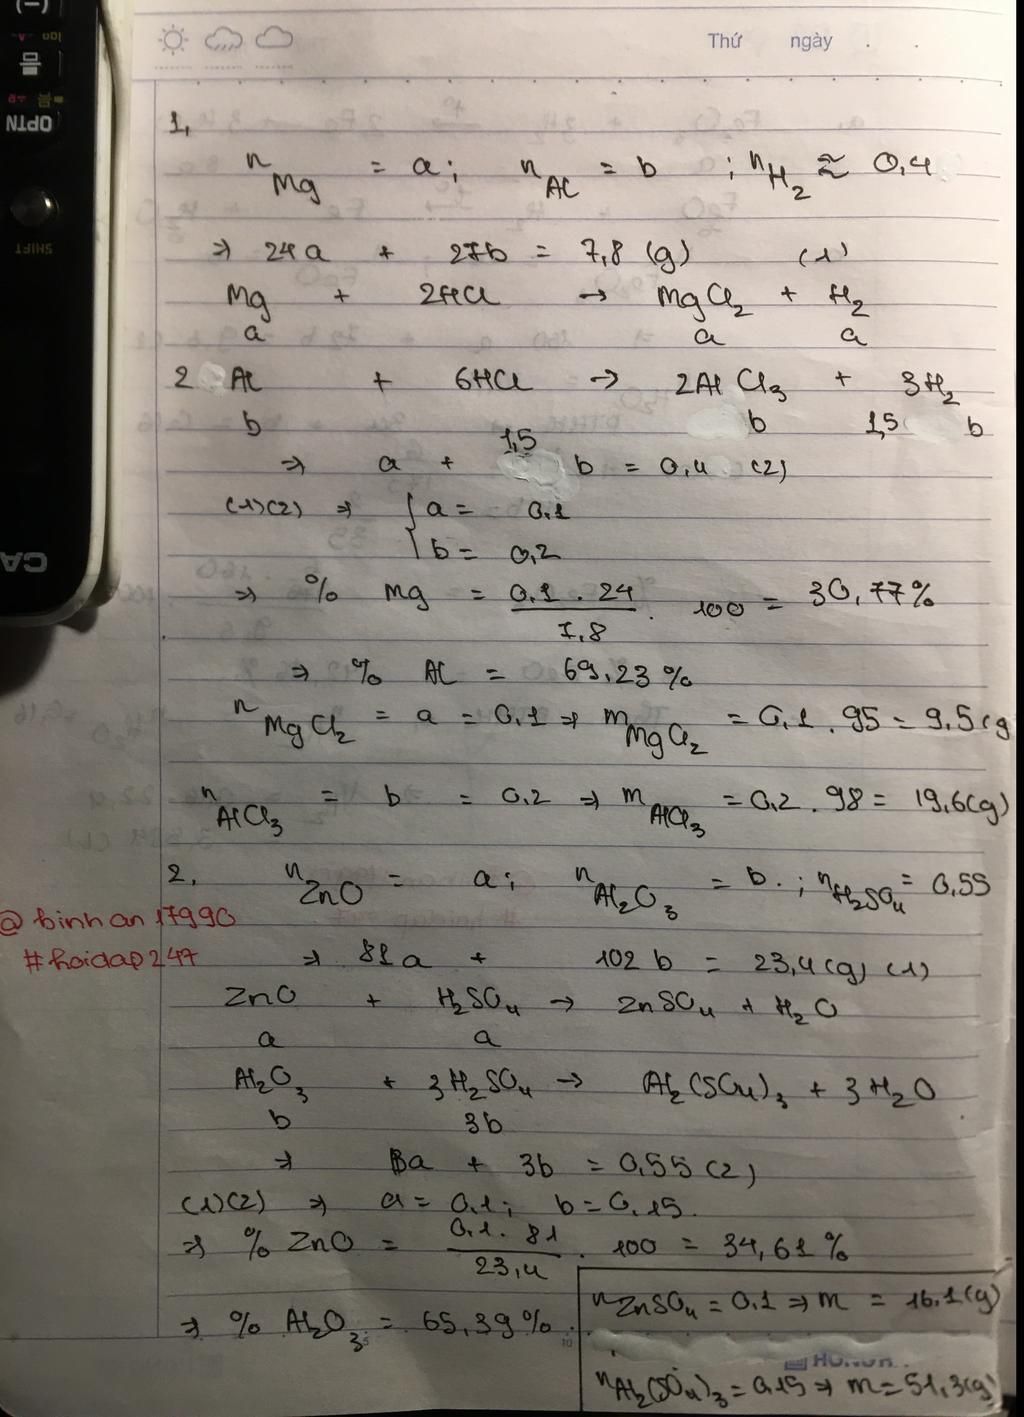 OPTN
SHIFT
CA
Thứ ngày . .
1,
nMg = a; nAl = b ; nH2 ≈ 0,4
=> 24a + 27b = 7,8 (g) (1)
Mg + 2HCl → MgCl2 + H2
a a a
2 Al + 6HCl → 2AlCl3 + 3H2
b b 1,5 b
=> a + 1,5 b = 0,4 (2)
(1)(2) => { a = 0,1
b = 0,2
=> % Mg = 0,1 . 24 / 7,8 . 100 = 30,77%
=> % Al = 69,23%
nMgCl2 = a = 0,1 => mMgCl2 = 0,1 . 95 = 9,5(g
nAlCl3 = b = 0,2 => mAlCl3 = 0,2 . 98 = 19,6(g)
2, nZnO = a; nAl2O3 = b. ; nH2SO4 = 0,55
@binhan17990
#hoidap247
=> 81a + 102b = 23,4(g) (1)
ZnO + H2SO4 → ZnSO4 + H2O
a a
Al2O3 + 3H2SO4 → Al2(SO4)3 + 3H2O
b 3b
=> a + 3b = 0,55 (2)
(1)(2) => a = 0,1; b = 0,15.
=> % ZnO = 0,1 . 81 / 23,4 . 100 = 34,61%
=> % Al2O3 = 65,39%.
nZnSO4 = 0,1 => m = 16,1(g)
nAl2(SO4)3 = 0,15 => m = 51,3(g)